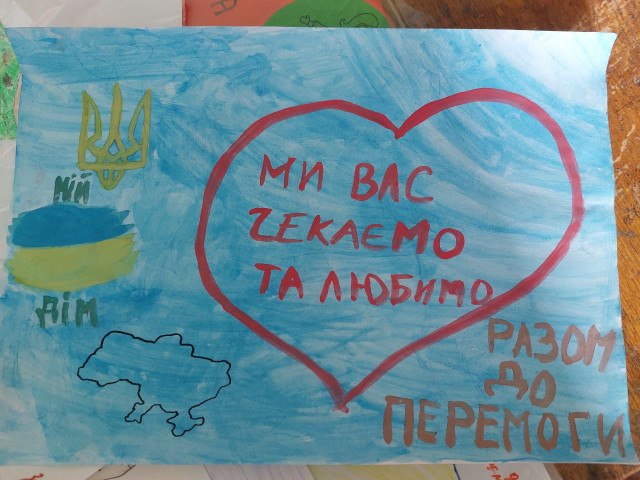 МІЙ
ДІМ
МИ ВАС
ЧЕКАЄМО
ТА ЛЮБИМО
РАЗОМ
ДО
ПЕРЕМОГИ